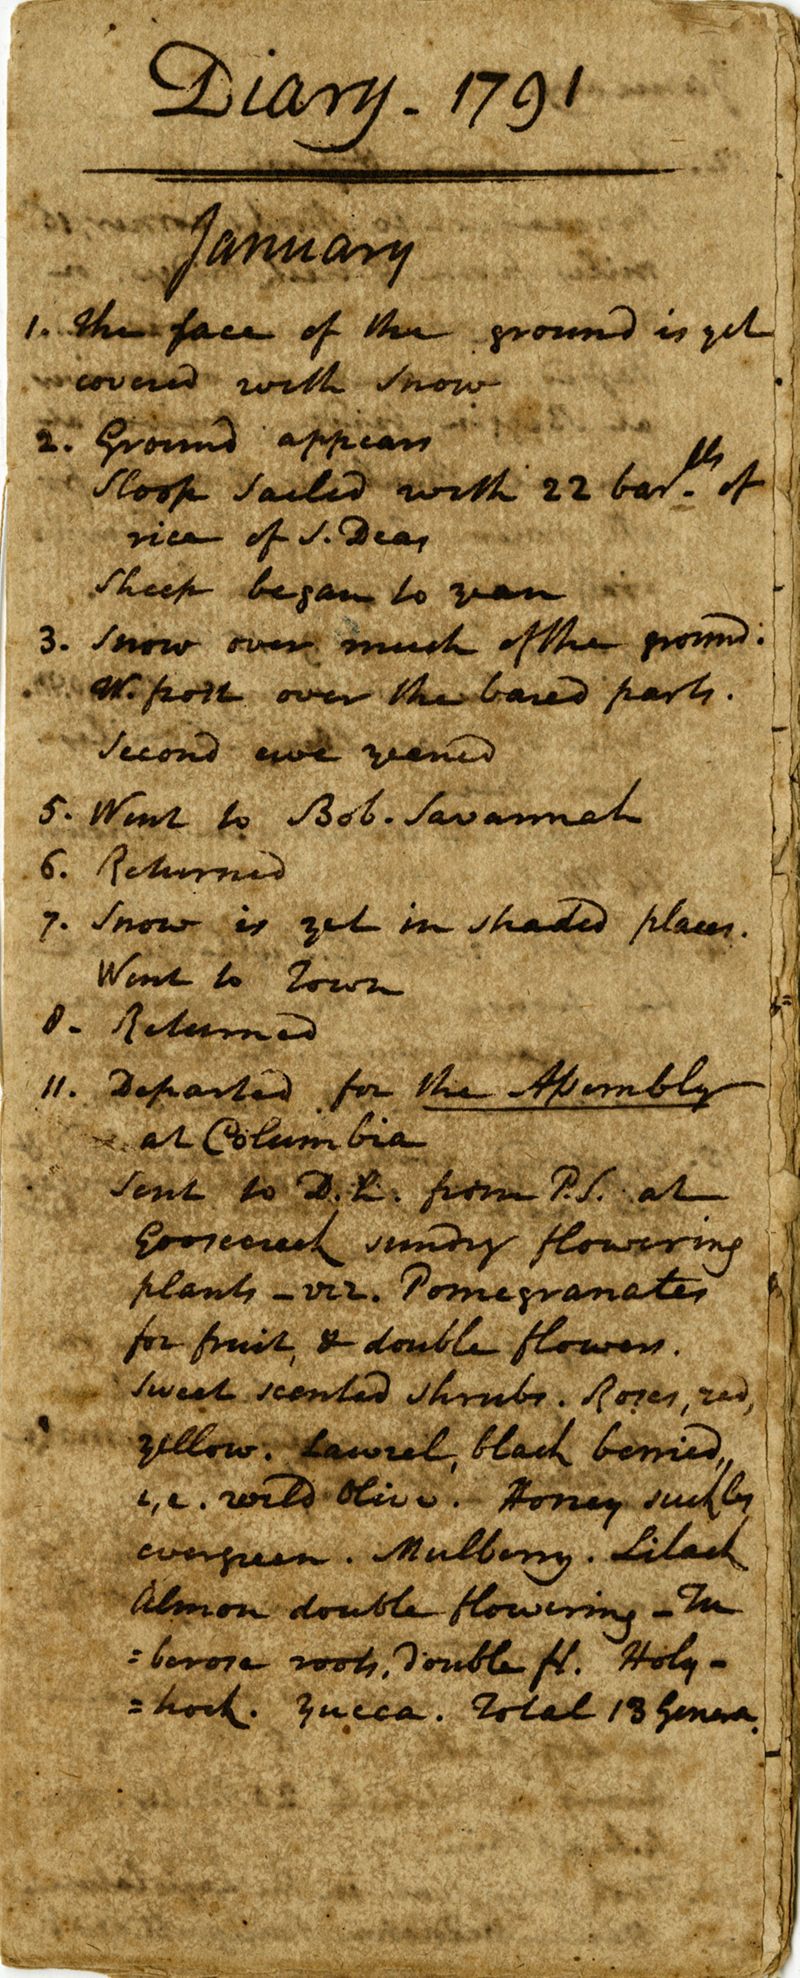 Diary. 1791
January
1. The face of the ground is yet
covered with snow
2. Ground appears
Sloop sailed with 22 bar.lls of
rice of S. Deas
Sheep began to yean
3. Snow over much of the ground.
W. frost over the bared parts.
Second ewe yeaned
5. Went to Bob. Savannah
6. Returned
7. Snow is yet in shaded places.
Went to Town
8. Returned
11. Departed for the Assembly
at Columbia
Sent to D. L. from P.S. at
Goosecreek sundry flowering
plants - viz. Pomegranates
for fruit, & double flowers.
Sweet scented shrubs. Roses, red,
yellow. Lawrel, black berried,
i,e. wild Olive. Honey suckles
evergreen. Mulberry. Lilack
Almon double flowering - Tu
=berose roots, double fl. Holy-
=hock. Yucca. Total 13 Genera.